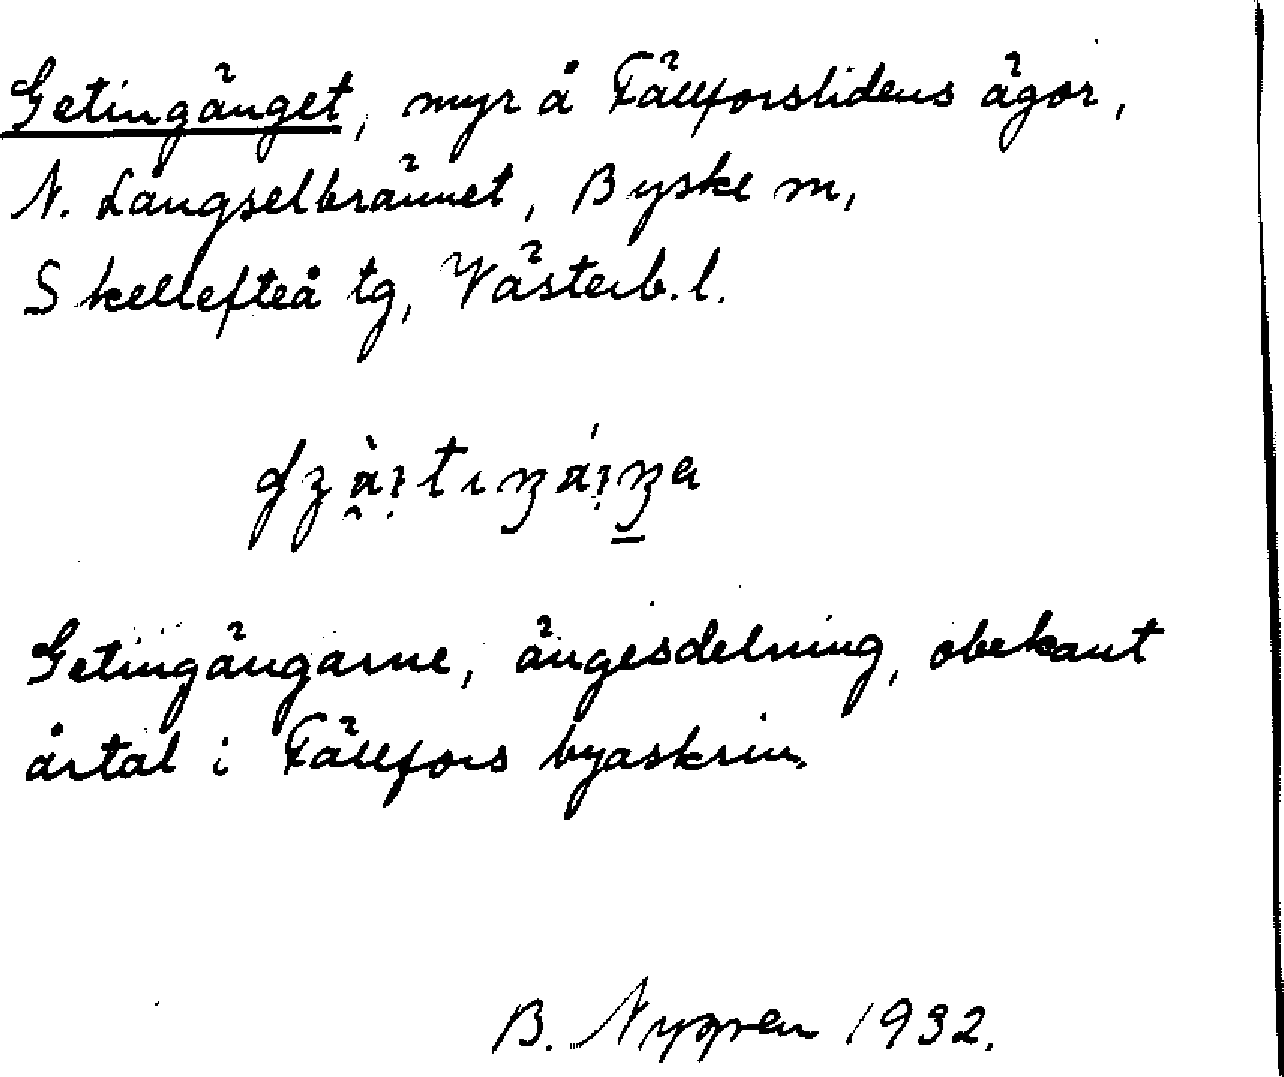 Getingänget, myr å Fällforslidens ägor,
N. Långselbrännet, Byske sn,
Skellefteå tg, Västerb. l.
Getingängarne, ängesdelning, obekant
årtal i Fällfors byaskrin.
B. Nygren 1932.